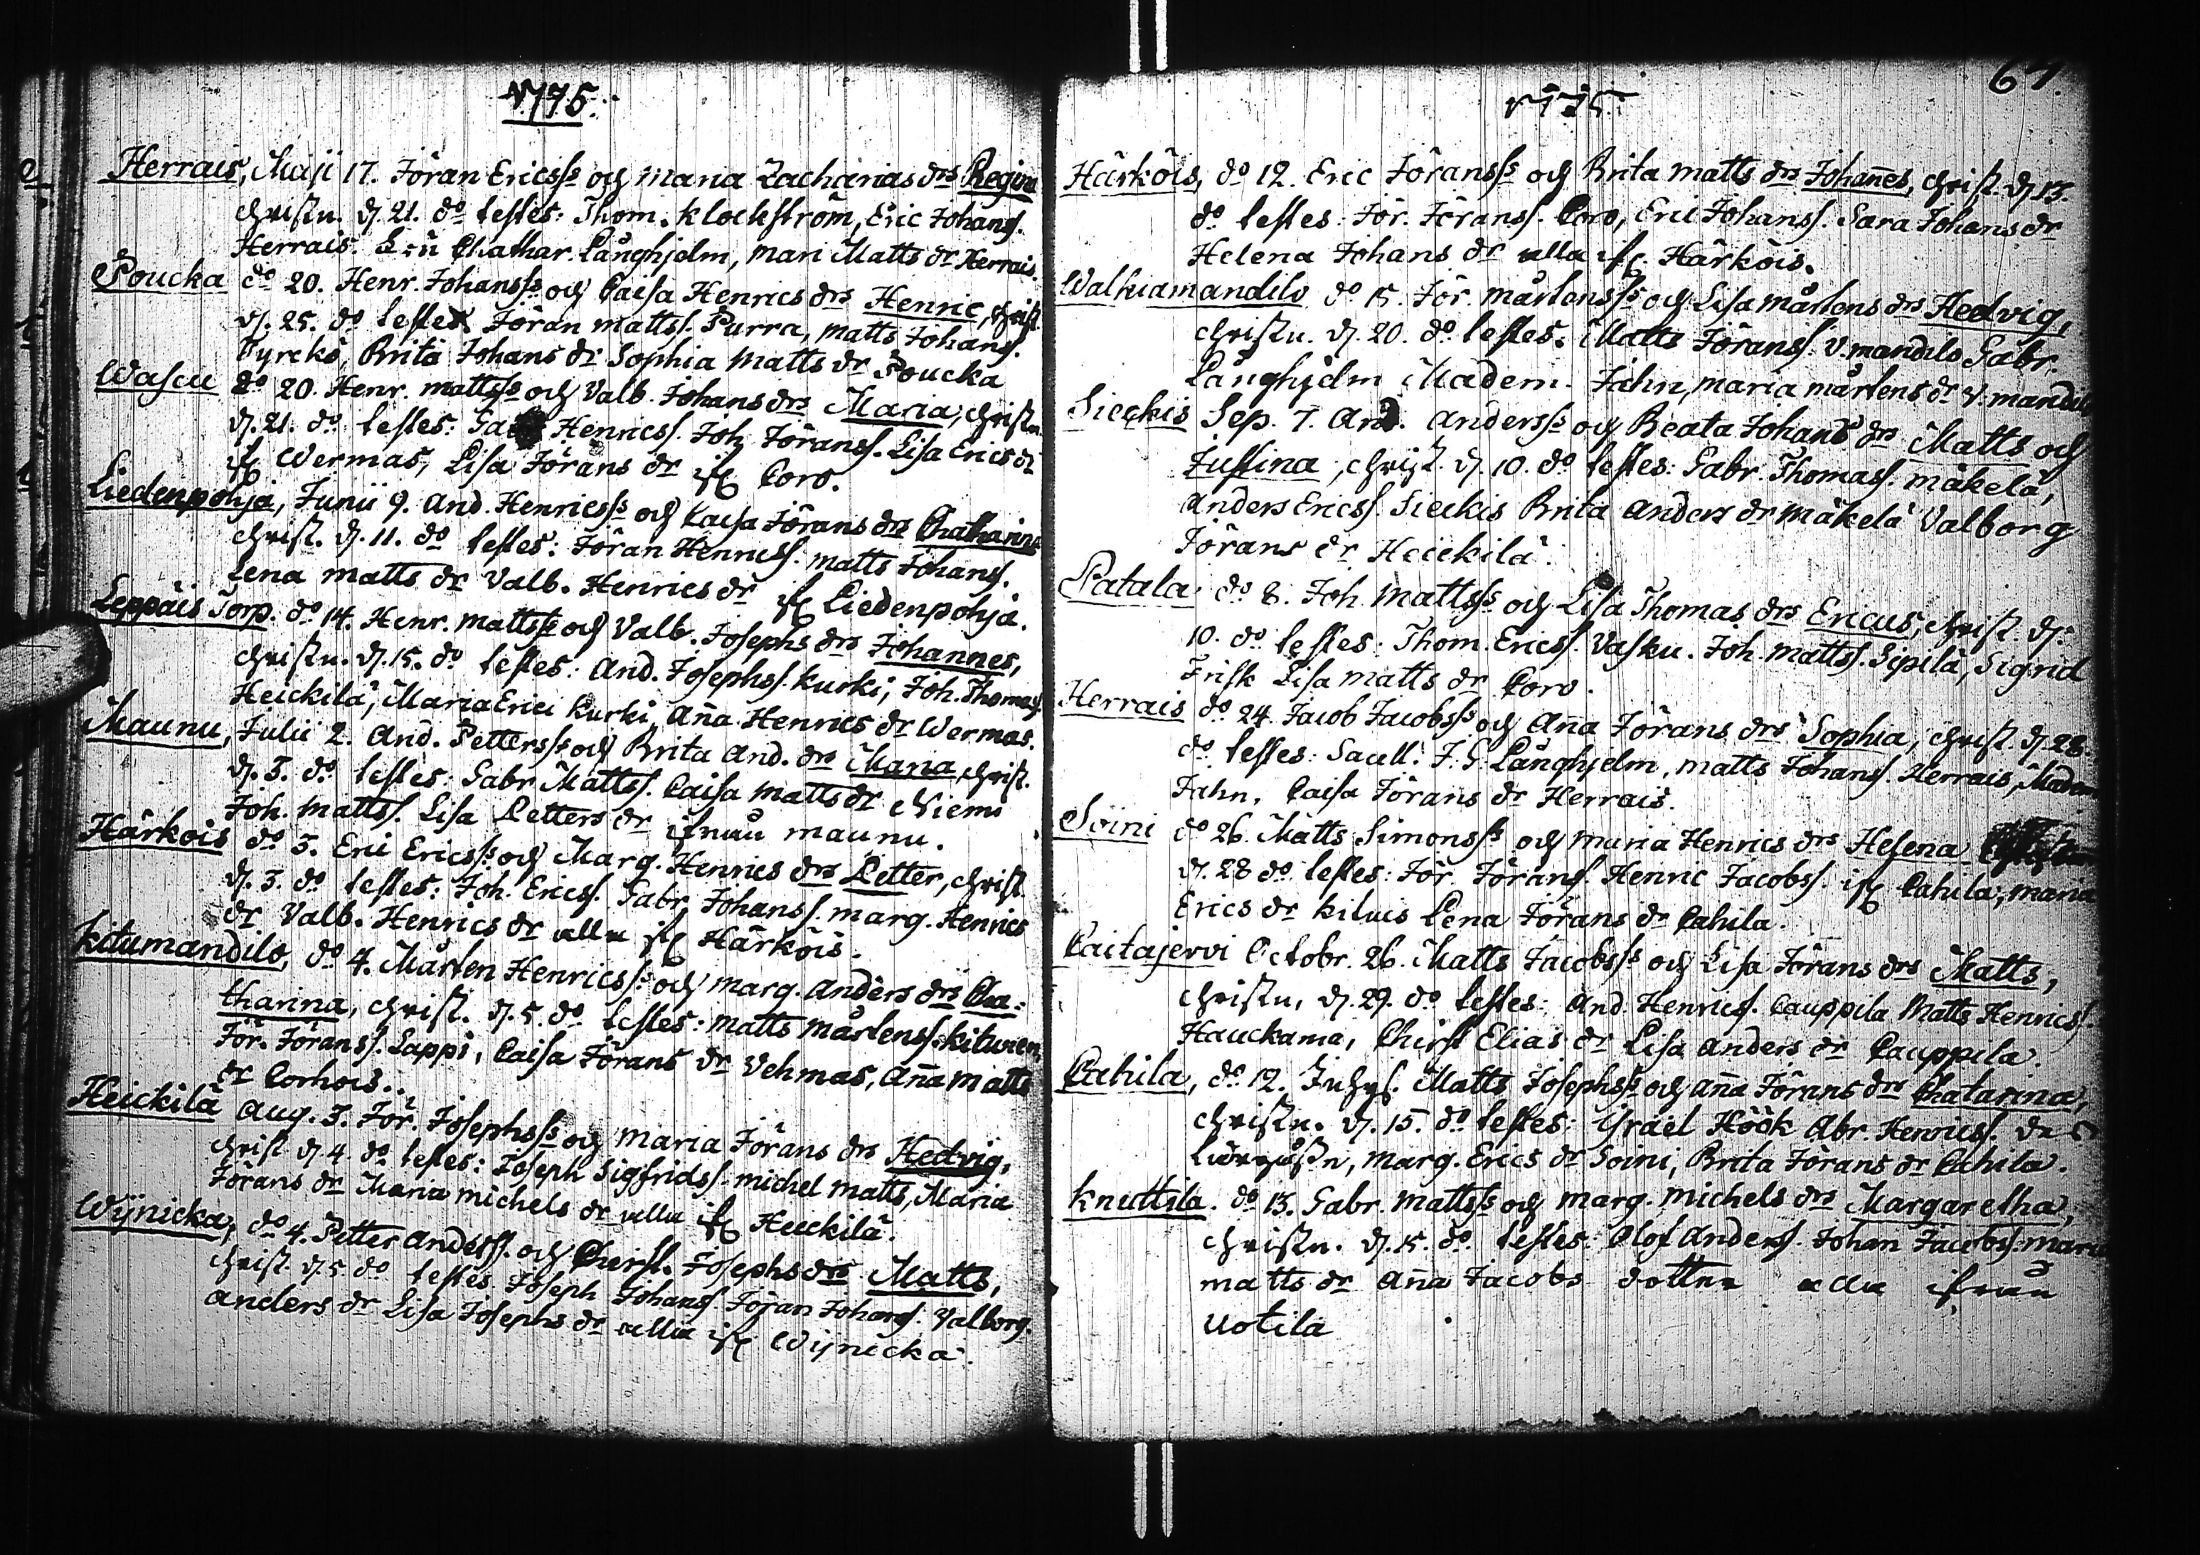 1775.
Herrais, Maji 17. Jöran Ericsss och Maria Zacharias drs Regina
christn. d. 21. do testes: Thom. Klockström, Eric Johanss.
Herrais. Chathar. Långhjelm, Mari Matts dr Herrais.
Poucka do 20. Henr. Johansss och Caisa Henrics drs Henric, christ.
d. 25. do testes Jöran Mattss. Purra, Matts Johanss.
Pyreko, Brita Johans dr Sophia Matts dr Poucka
Wascu do 20. Henr. Mattsss och Valb. Johans drs Maria, christn.
d. 21. do testes: Henricss. Joh. Jöranss. Lisa Erics dr
ifr. Wermas, Lisa Jörans dr ifr. Coro.
Liedenpohja, Junii 9. And. Henricsss och Caisa Jörans drs Chatharina
christ. d. 11. do testes: Jöran Henricss. Matts Johanss.
Lena Matts dr Valb. Henrics dr ifr. Liedenpohja.
Leppäis Torp. do 14. Henr. Mattsss och Valb. Josephs drs Johannes,
christn. d. 15. do testes: And. Josephss. Kurki, Joh. Thomass.
Heickilä, Maria Erici Kurki, Anna Henrics dr Wermas.
Maunu, Julii 2. And. Pettersss och Brita And. drs Maria, christ.
d. 3. do testes: Gabr. Mattss. Caisa Matts dr Niemi
Joh. Mattss. Lisa Petters dr ifrån Maunu.
Härköis do 3. Eric Ericsss och Marg. Henrics drs Petter, christ.
d. 3. do testes: Joh. Ericss. Gabr. Johanss. Marg. Henrics
dr Valb. Henrics dr alla ifr. Härköis.
Kitumandilo, do 4. Mårten Henricsss och Marg. Anders drs Cha=
tharina, christ. d. 5. do testes: Matts Mårtenss. Kituinen,
Jör. Jöranss. Lappi, Caisa Jörans dr Vehmas, Anna Matts
dr Corhois.
Heickilä Aug. 3. Jör. Josephsss och Maria Jörans drs Hedvig,
christ d. 4. do testes: Joseph Sigfridss. Michel Matts, Maria
Jörans dr Maria Michels dr alla ifr. Heickilä.
Wijnicka, do 4. Petter Anderss. och Christ. Josephs drs Matts,
christ. d. 5. do testes. Joseph Johanss. Jöran Johanss. Valborg.
Anders dr Lisa Josephs dr alla ifr. Wijnicka.
64.
1775.
Härköis, do 12. Eric Jöransss och Brita Matts drs Johannes, christ. d. 13.
do testes: Jör. Jöranss. Coro, Eric Johanss. Sara Johans dr
Helena Johans dr alla ifr. Härköis.
Walkiamandilo do 15. Jör. Mårtensss och Lisa Mårtens drs Hedvig,
christn. d. 20. do testes. Matts Jöranss. V.mandilo Gabr.
Långhjelm Madem. Jahn, Maria Mårtens dr V.mandilo
Sieckis Sep. 7. And. Andersss och Beata Johans drs Matts och
Justina, christ. d. 10. do testes: Gabr. Thomass. Mäkelä,
Anders Ericss. Sieckis Brita Anders dr Mäkelä Valborg
Jörans dr Heickilä.
Patala do 8. Joh. Mattsss och Lisa Thomas drs Ericus, christ. d.
10. do testes: Thom. Ericss. Vasku. Joh. Mattss. Sipilä, Sigrid
Frisk Lisa Matts dr Coro.
Herrais do 24. Jacob Jacobsss och Anna Jörans drs Sophia, christ. d. 28.
do testes: Sacell. J. G. Långhjelm, Matts Johanss. Herrais, Madem
Jahn, Caisa Jörans dr Herrais.
Soini do 26. Matts Simonsss och Maria Henrics drs Helena
d. 28 do testes: Jör. Jöranss. Henric Jacobss. ifr. Cahila, Maria
Erics dr Kiluis Lena Jörans dr Cahila.
Caitajervi Octobr. 26. Matts Jacobsss och Lisa Jörans drs Matts,
christn, d. 29. do testes: And. Henricss. Cauppila Matts Henricss.
Hauckama, Christ Elias dr Lisa Anders dr Cauppila.
Cahila, do 12. Matts Josephsss och Anna Jörans drs Chatarina,
christn. d. 15. do testes: Israel Höök Abr. Henricss.
Marg. Erics dr Soini, Brita Jörans dr Cahila.
Knuttila. do 13. Gabr. Mattsss och Marg. Michels drs Margaretha,
christn. d. 15. do. testes: Olof Anderss. Johan Jacobss. Maria
Matts dr Anna Jacobs dotter alla ifrån
Uotila